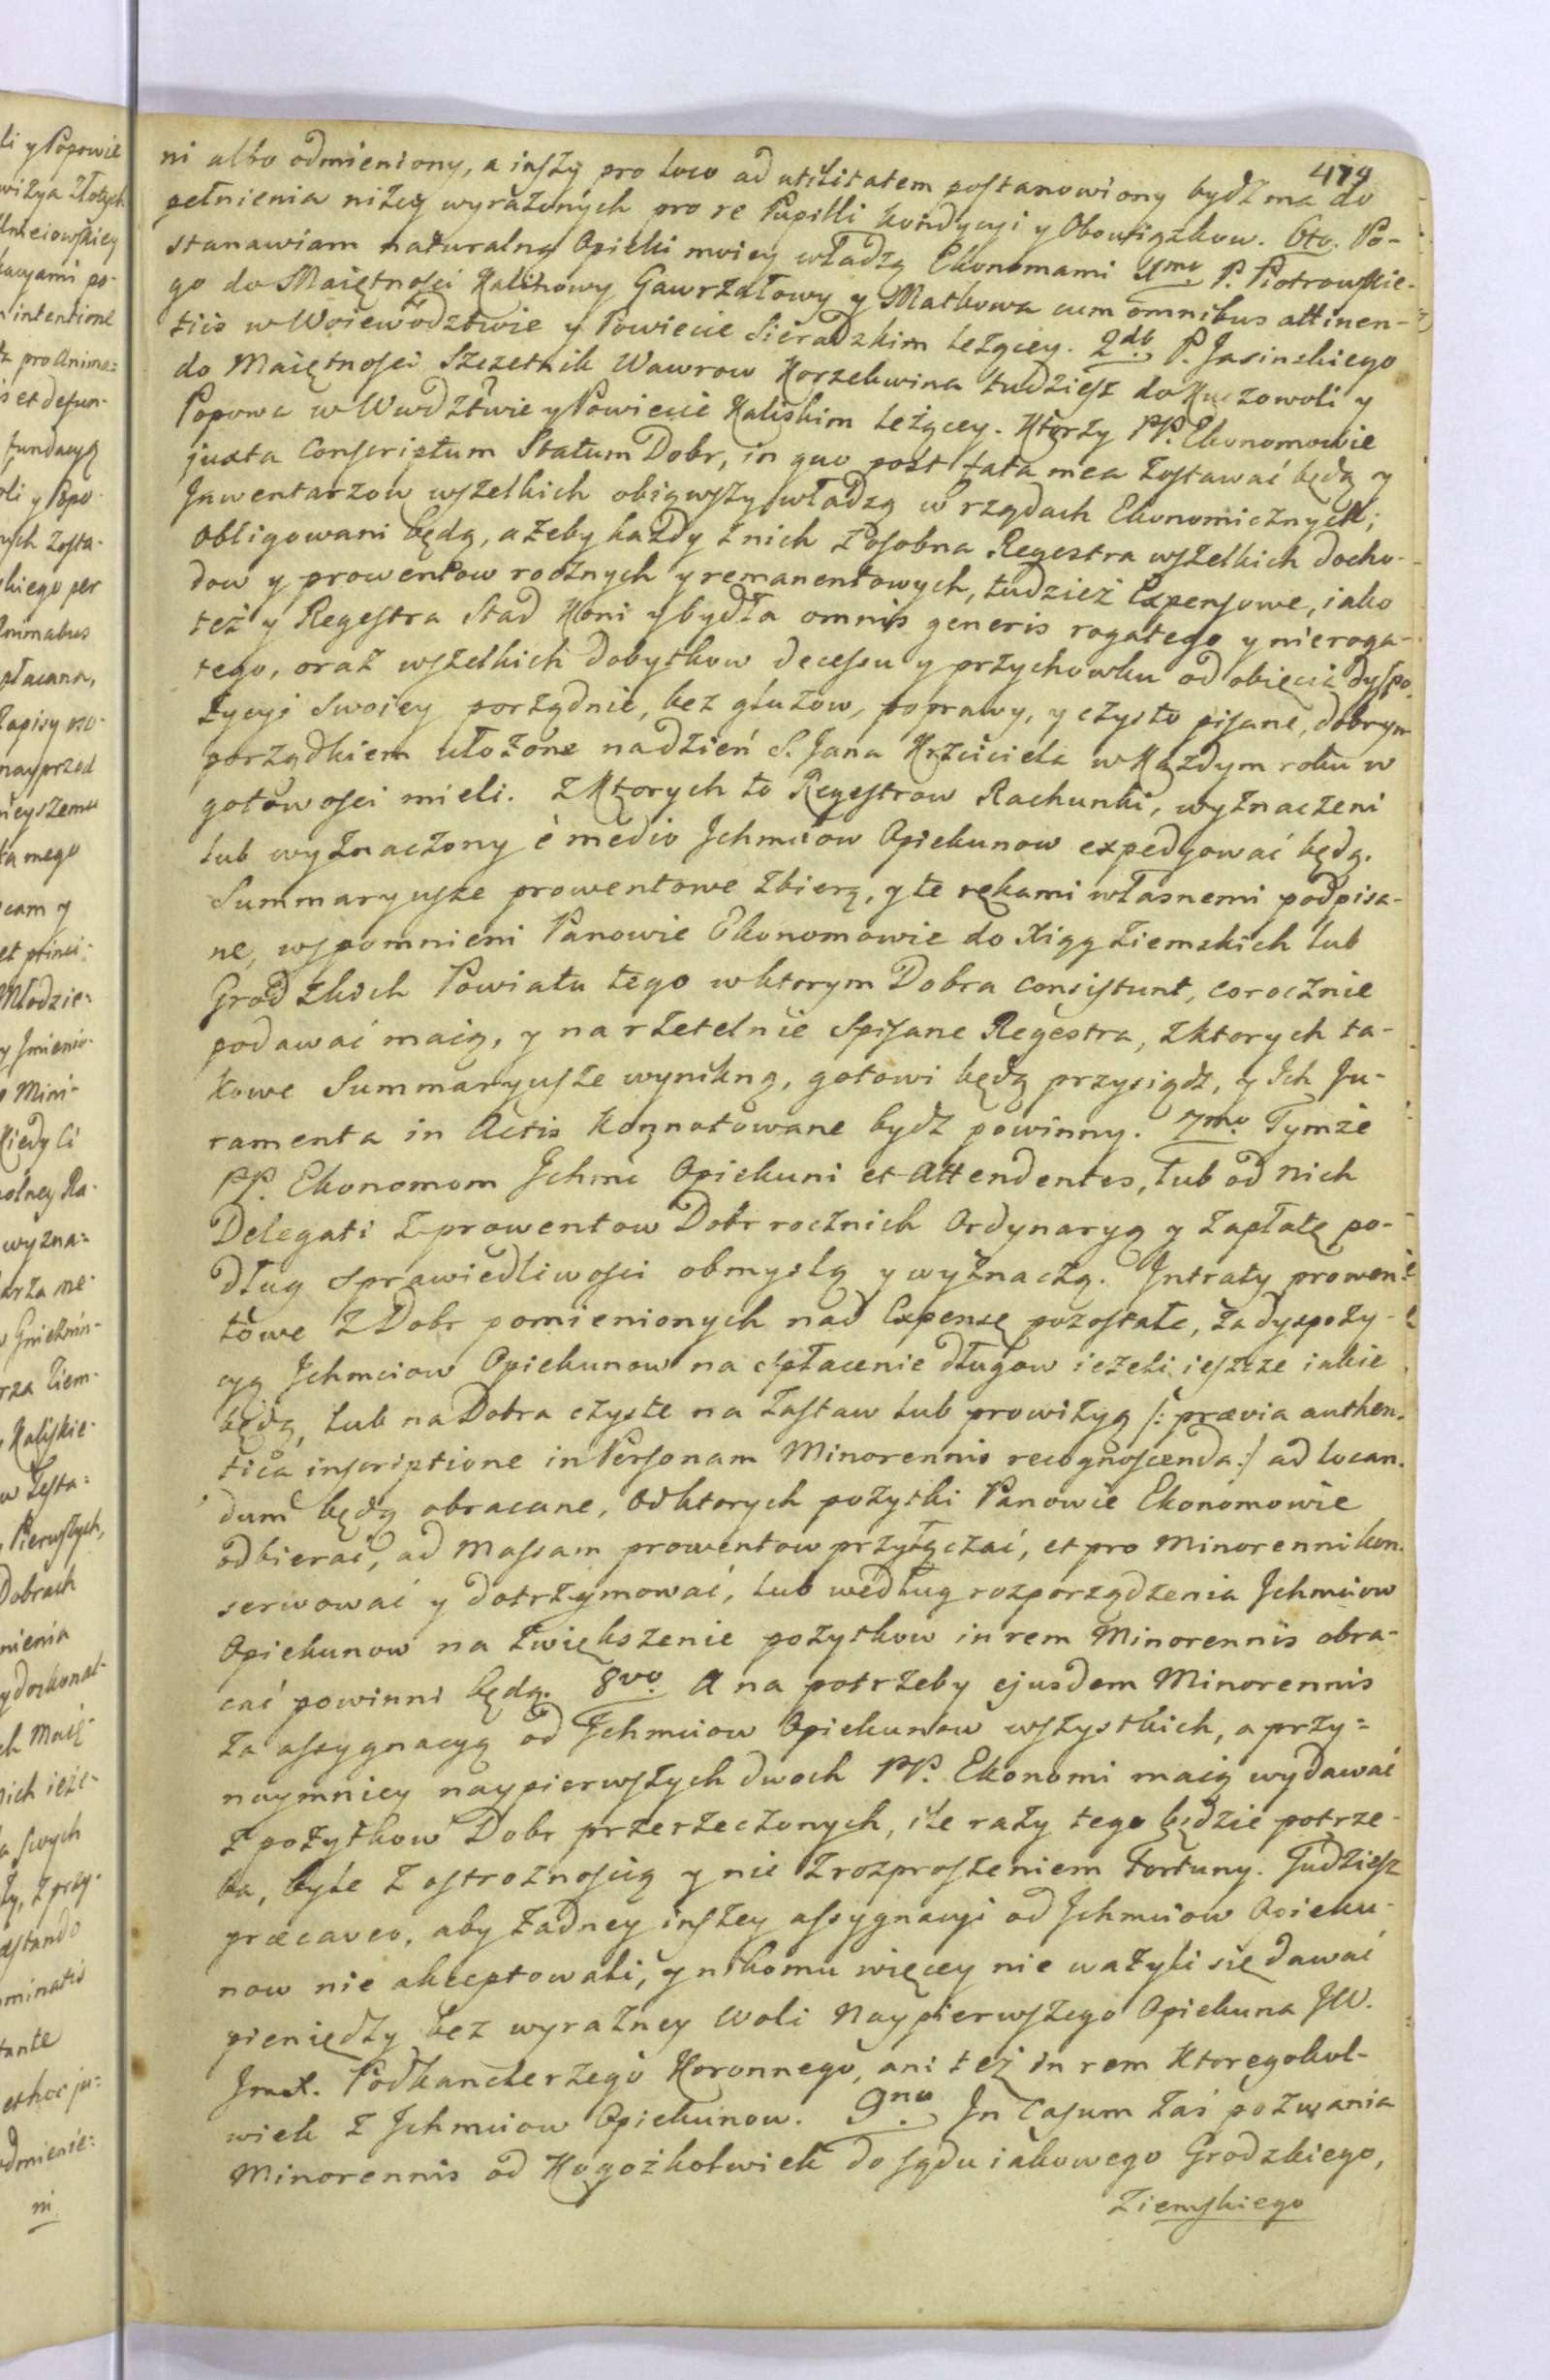 479
ni albo odmieniony, a inszy pro loco ad utilitatem postanowiony bydz ma do
pełnienia niżey wyrażonych pro re Pupilli kondycyi y Obowiązkow. 6to. Po-
stanawiam naturalną Opieki moiey władzą Ekonomami 1mo P. Piotrowskie-
go do Maiętnosci Kalinowy Gawrzałowy y Małkowa cum omnibus attinen-
tiis w Woiewodztwie y Powiecie Sieradzkim leżącey. 2do P. Jasinskiego
do Maiętnosci Szczetnik Wawrow Korzekwina tudziesz do Kuczowoli y
Popowa w Wwdztwie y Powiecie Kaliskim leżącey. Ktorzy PP. Ekonomowie
juxta Conscriptum Statum Dobr, in quo post fata mea zostawać będą y
Jnwentarzow wszelkich obiąwszy władzą w rządach Ekonomicznych;
Obligowani będą, ażeby każdy z nich z osobna Regestra wszelkich docho-
dow y prowentow rocznych y remanentowych, tudzież Expensowe, iako
też y Regestra Stad Koni y bydła omnis generis rogatego y nieroga-
tego, oraz wszelkich dobytkow decessu y przychowku od obięcia dyspo-
zycyi swoiey porządnie, bez gluzow, poprawy, y czysto pisane, dobrym
porządkiem ułożone na dzień S. Jana Krzciciela w Każdym roku w
gotowosci mieli. Z Ktorych to Regestrow Rachunki, wyznaczeni
lub wyznaczony è medio Jchmciow Opiekunow expedyować będą.
Summaryusze prowentowe zbiorą, y te rękami własnemi podpisa-
ne, wspomnieni Panowie Ekonomowie do Xiąg Ziemskich lub
Grodzkich Powiatu tego w ktorym Dobra consistunt, corocznie
podawać maią, y na rzetelnie spisane Regestra, z ktorych ta-
kowe Summaryusze wynikną, gotowi będą przysiądz, y Ich Ju-
ramenta in Actis Konnotowane bydz powinny. 7mo. Tymże
PP. Ekonomom Jchmc Opiekuni et Attendentes, lub od nich
Delegati z prowentow Dobr rocznich Ordynaryą y zapłatę po-
dług sprawiedliwosci obmyslą y wyznaczą. Jntraty prowen-
towe z Dobr pomienionych nad Expensę pozostałe, za dyspozy-
cyą Jchmciow Opiekunow na spłacenie długow ieżeli ieszcze iakie
będą, lub na Dobra czyste na zastaw lub prowizyą /: prævia authen-
tica inscriptione in Personam Minorennis recognoscenda :/ ad locan-
dum będą obracane, Od ktorych pożytki Panowie Ekonomowie
odbierać, ad Massam prowentow przyłączać, et pro Minorenni kon-
serwować y dotrzymować, lub według rozporządzenia Jchmciow
Opiekunow na zwiększenie pożytkow in rem Minorennis obra-
cać powinni będą. 8vo. A na potrzeby ejusdem Minorennis
za assygnacyą od Jchmciow Opiekunow wszystkich, a przy=
naymniey naypierwszych dwoch PP. Ekonomi maią wydawać
z pożytkow Dobr przerzeczonych, ile razy tego będzie potrze-
ba, byle z ostrożnoscią y nie z rozproszeniem fortuny. Tudziesz
præcaveo, aby żadney inszey assygnacyi od Jchmciow Opieku-
now nie akceptowali, y nikomu więcey nie ważyli się dawać
pieniędzy bez wyrazney woli Naypierwszego Opiekuna JW.
Jmci. Podkanclerzego Koronnego, ani też in rem Ktoregokol-
wiek z Jchmciow Opiekunow. 9no. Jn Casum zaś pozwania
Minorennis od Kogożkolwiek do sądu iakowego Grodzkiego,
Ziemskiego